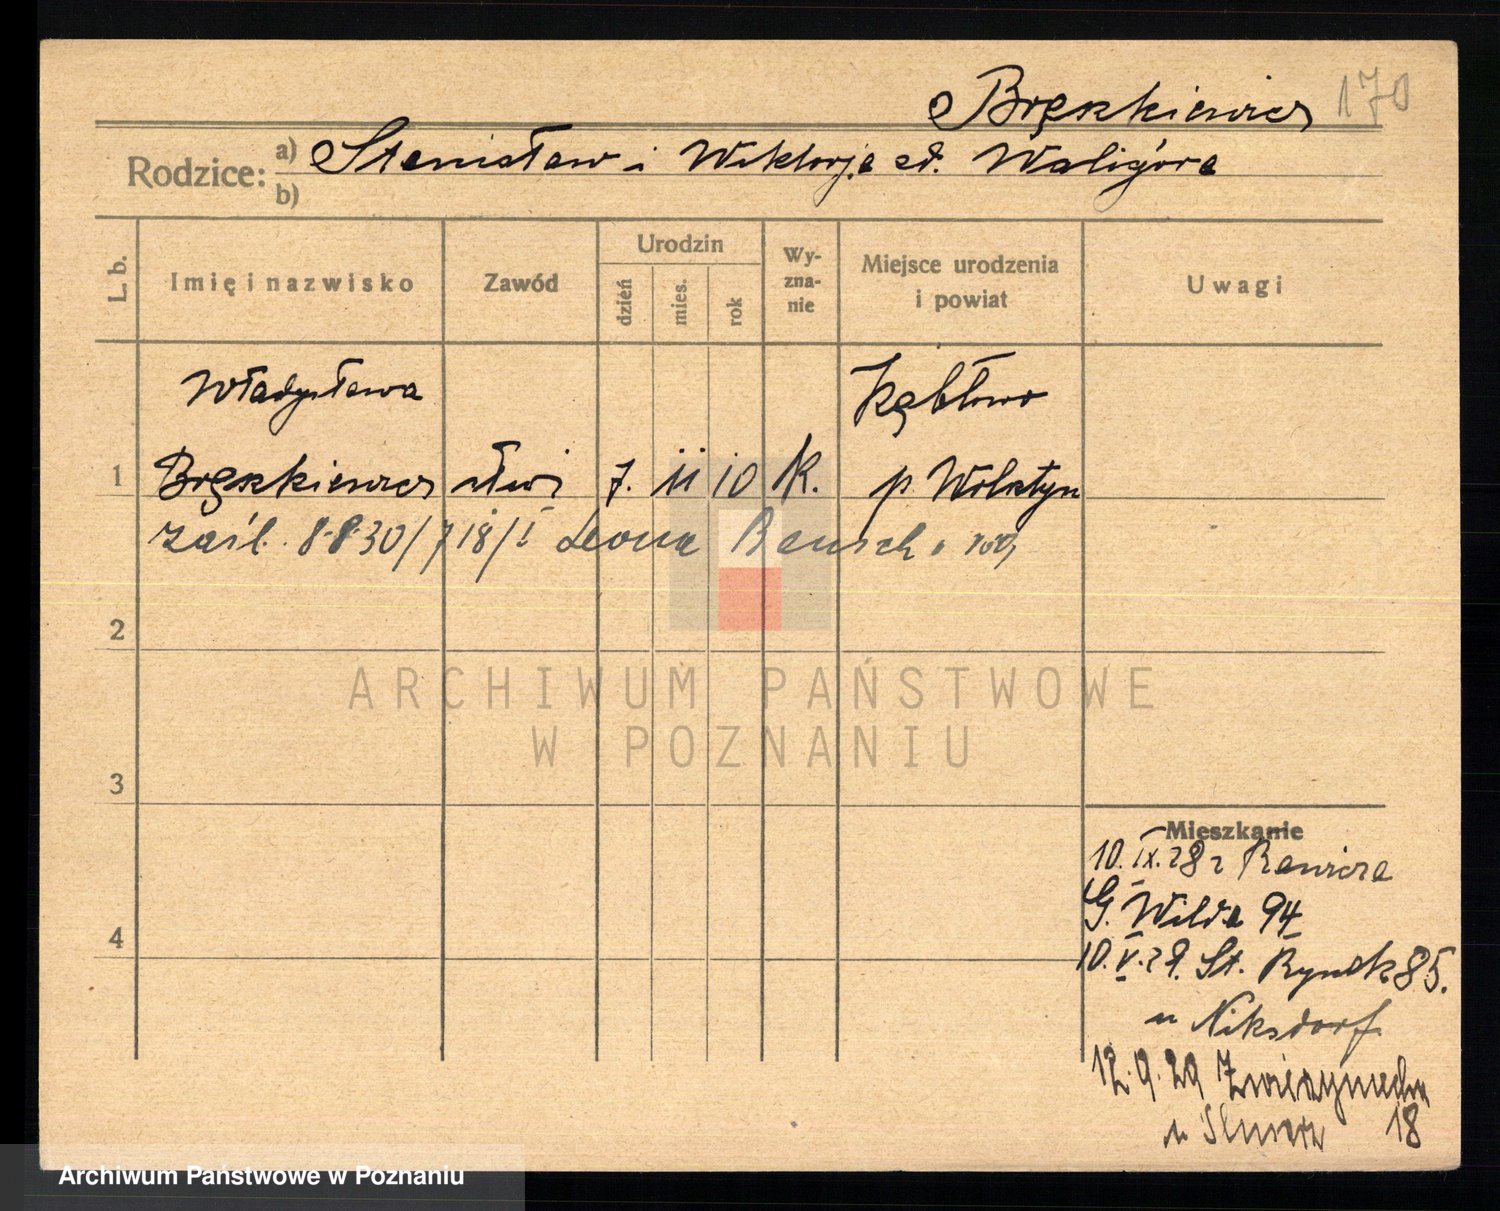 Bręszkiewicz 170
Rodzice: a) Stanisław i Wiktorja zd. Waligóra
b)
L. b. Imię i nazwisko Zawód Urodzin dzień mies. rok Wyznanie Miejsce urodzenia i powiat Uwagi
Władysława Kębłowo
1 Bręszkiewicz służ 7. 11 10 K. p. Wolsztyn
zaśl. 8.8.30/718/I Leona Bausch
2
ARCHIWUM PAŃSTWOWE
W POZNANIU
3
Mieszkanie
10.IX.28 z Rawicza
G. Wilda 94
4
10.V.29. St. Rynek 85.
u Niksdorf
12.9.29 Zwierzyniecka
18
Archiwum Państwowe w Poznaniu